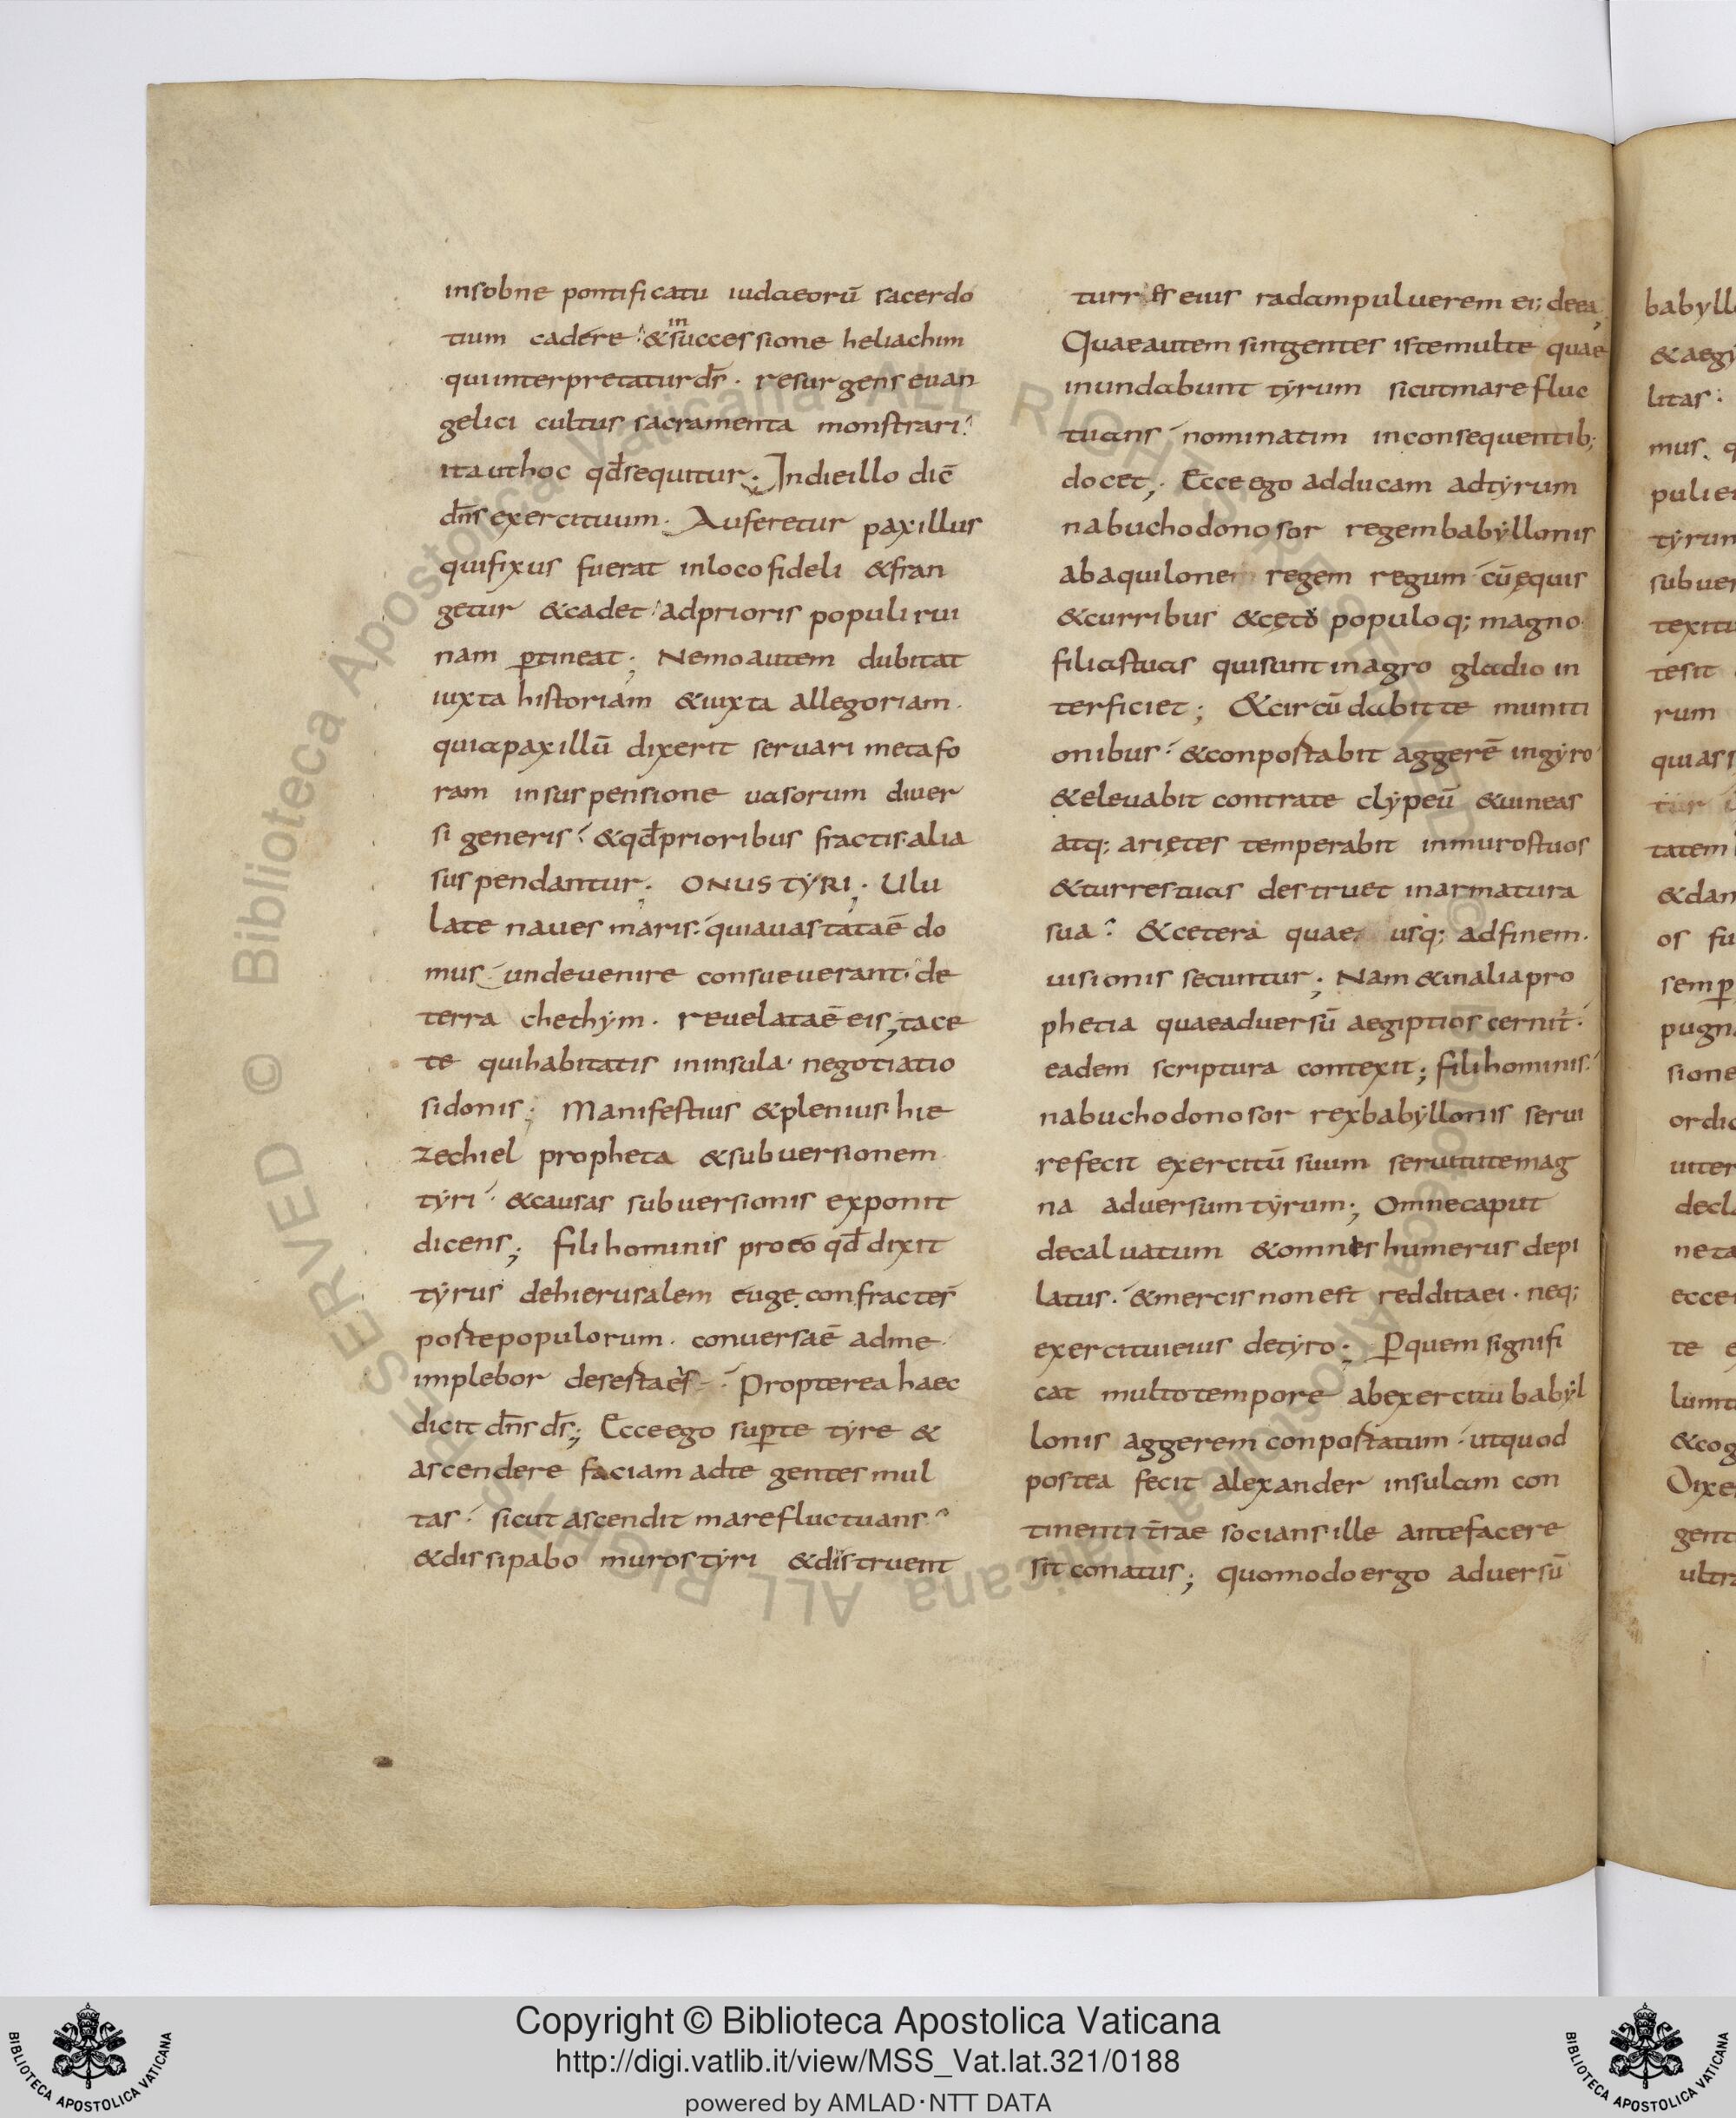 insobne pontificatu iudaeorū sacerdo
tium cadere &in successione heliachim
qui interpretatur dr̄s. resurgens euan
gelici cultus sacramenta monstrari.
ita ut hoc qđ sequitur. In die illo dic̄
dn̄s exercituum. Auferetur paxillus
qui fixus fuerat in loco fideli & fran
getur & cadet ad prioris populi rui
nam ꝑtineat; Nemo autem dubitat
iuxta historiam & iuxta allegoriam.
quia paxillū dixerit seruari metafo
ram in suspensione uasorum diuer
si generis & qđ prioribus fractis alia
suspendantur; ONUS TẎRI; Ulu
late naues maris. quia uastata ē do
mus unde uenire consueuerant. de
terra chethẏm. reuelata ē eis; tace
te qui habitatis in insula negotiatio
sidonis; Manifestius & plenius hie
zechiel propheta & subuersionem
tẏri & causas subuersionis exponit
dicens; fili hominis pro eo qđ dixit
tẏrus de hierusalem euge confractę s̄
portę populorum. conuersa ē ad me
implebor deserta ē. Propterea haec
dicit dn̄s ds̄; Ecce ego suꝑ te tẏre &
ascendere faciam ad te gentes mul
tas sicut ascendit mare fluctuans
& dissipabo muros tẏri & distruent
turres eius radam puluerem ei; de ea;
Quae autem sint gentes iste multe quae
inundabunt tẏrum sicut mare fluc
tuans nominatim in consequentib;
docet; Ecce ego adducam ad tẏrum
nabuchodonosor regem babẏllonis
ab aquilone regem regum cū equis
& curribus & cęto populoq; magno
filias tuas qui sunt in agro gladio in
terficiet; & circūdabit te muniti
onibus & conpostabit aggerē in gẏro
& eleuabit contra te clẏpeū & uineas
atq; arietes temperabit in muros tuos
& turres tuas destruet in armatura
sua & cetera quae usq; ad finem
uisionis secuntur; Nam & in alia pro
phetia quae aduersū aegiptios cernit.
eadem scriptura contexit; fili hominis.
nabuchodonosor rex babẏllonis serui
re fecit exercitū suum seruitute mag
na aduersum tẏrum; Omne caput
decaluatum & omnis humerus depi
latus. & mercis non est reddita ei. neq;
exercitui eius de tẏro; Ꝑ quem signifi
cat multo tempore ab exercitu babẏl
lonis aggerem conpostatum ut quod
postea fecit alexander insulam con
tinenti t̄rae socians ille ante facere
sit conatus; quomodo ergo aduersū
Copyright © Biblioteca Apostolica Vaticana
http://digi.vatlib.it/view/MSS_Vat.lat.321/0188
powered by AMLAD·NTT DATA
BIBLIOTECA APOSTOLICA VATICANA
BIBLIOTECA APOSTOLICA VATICANA